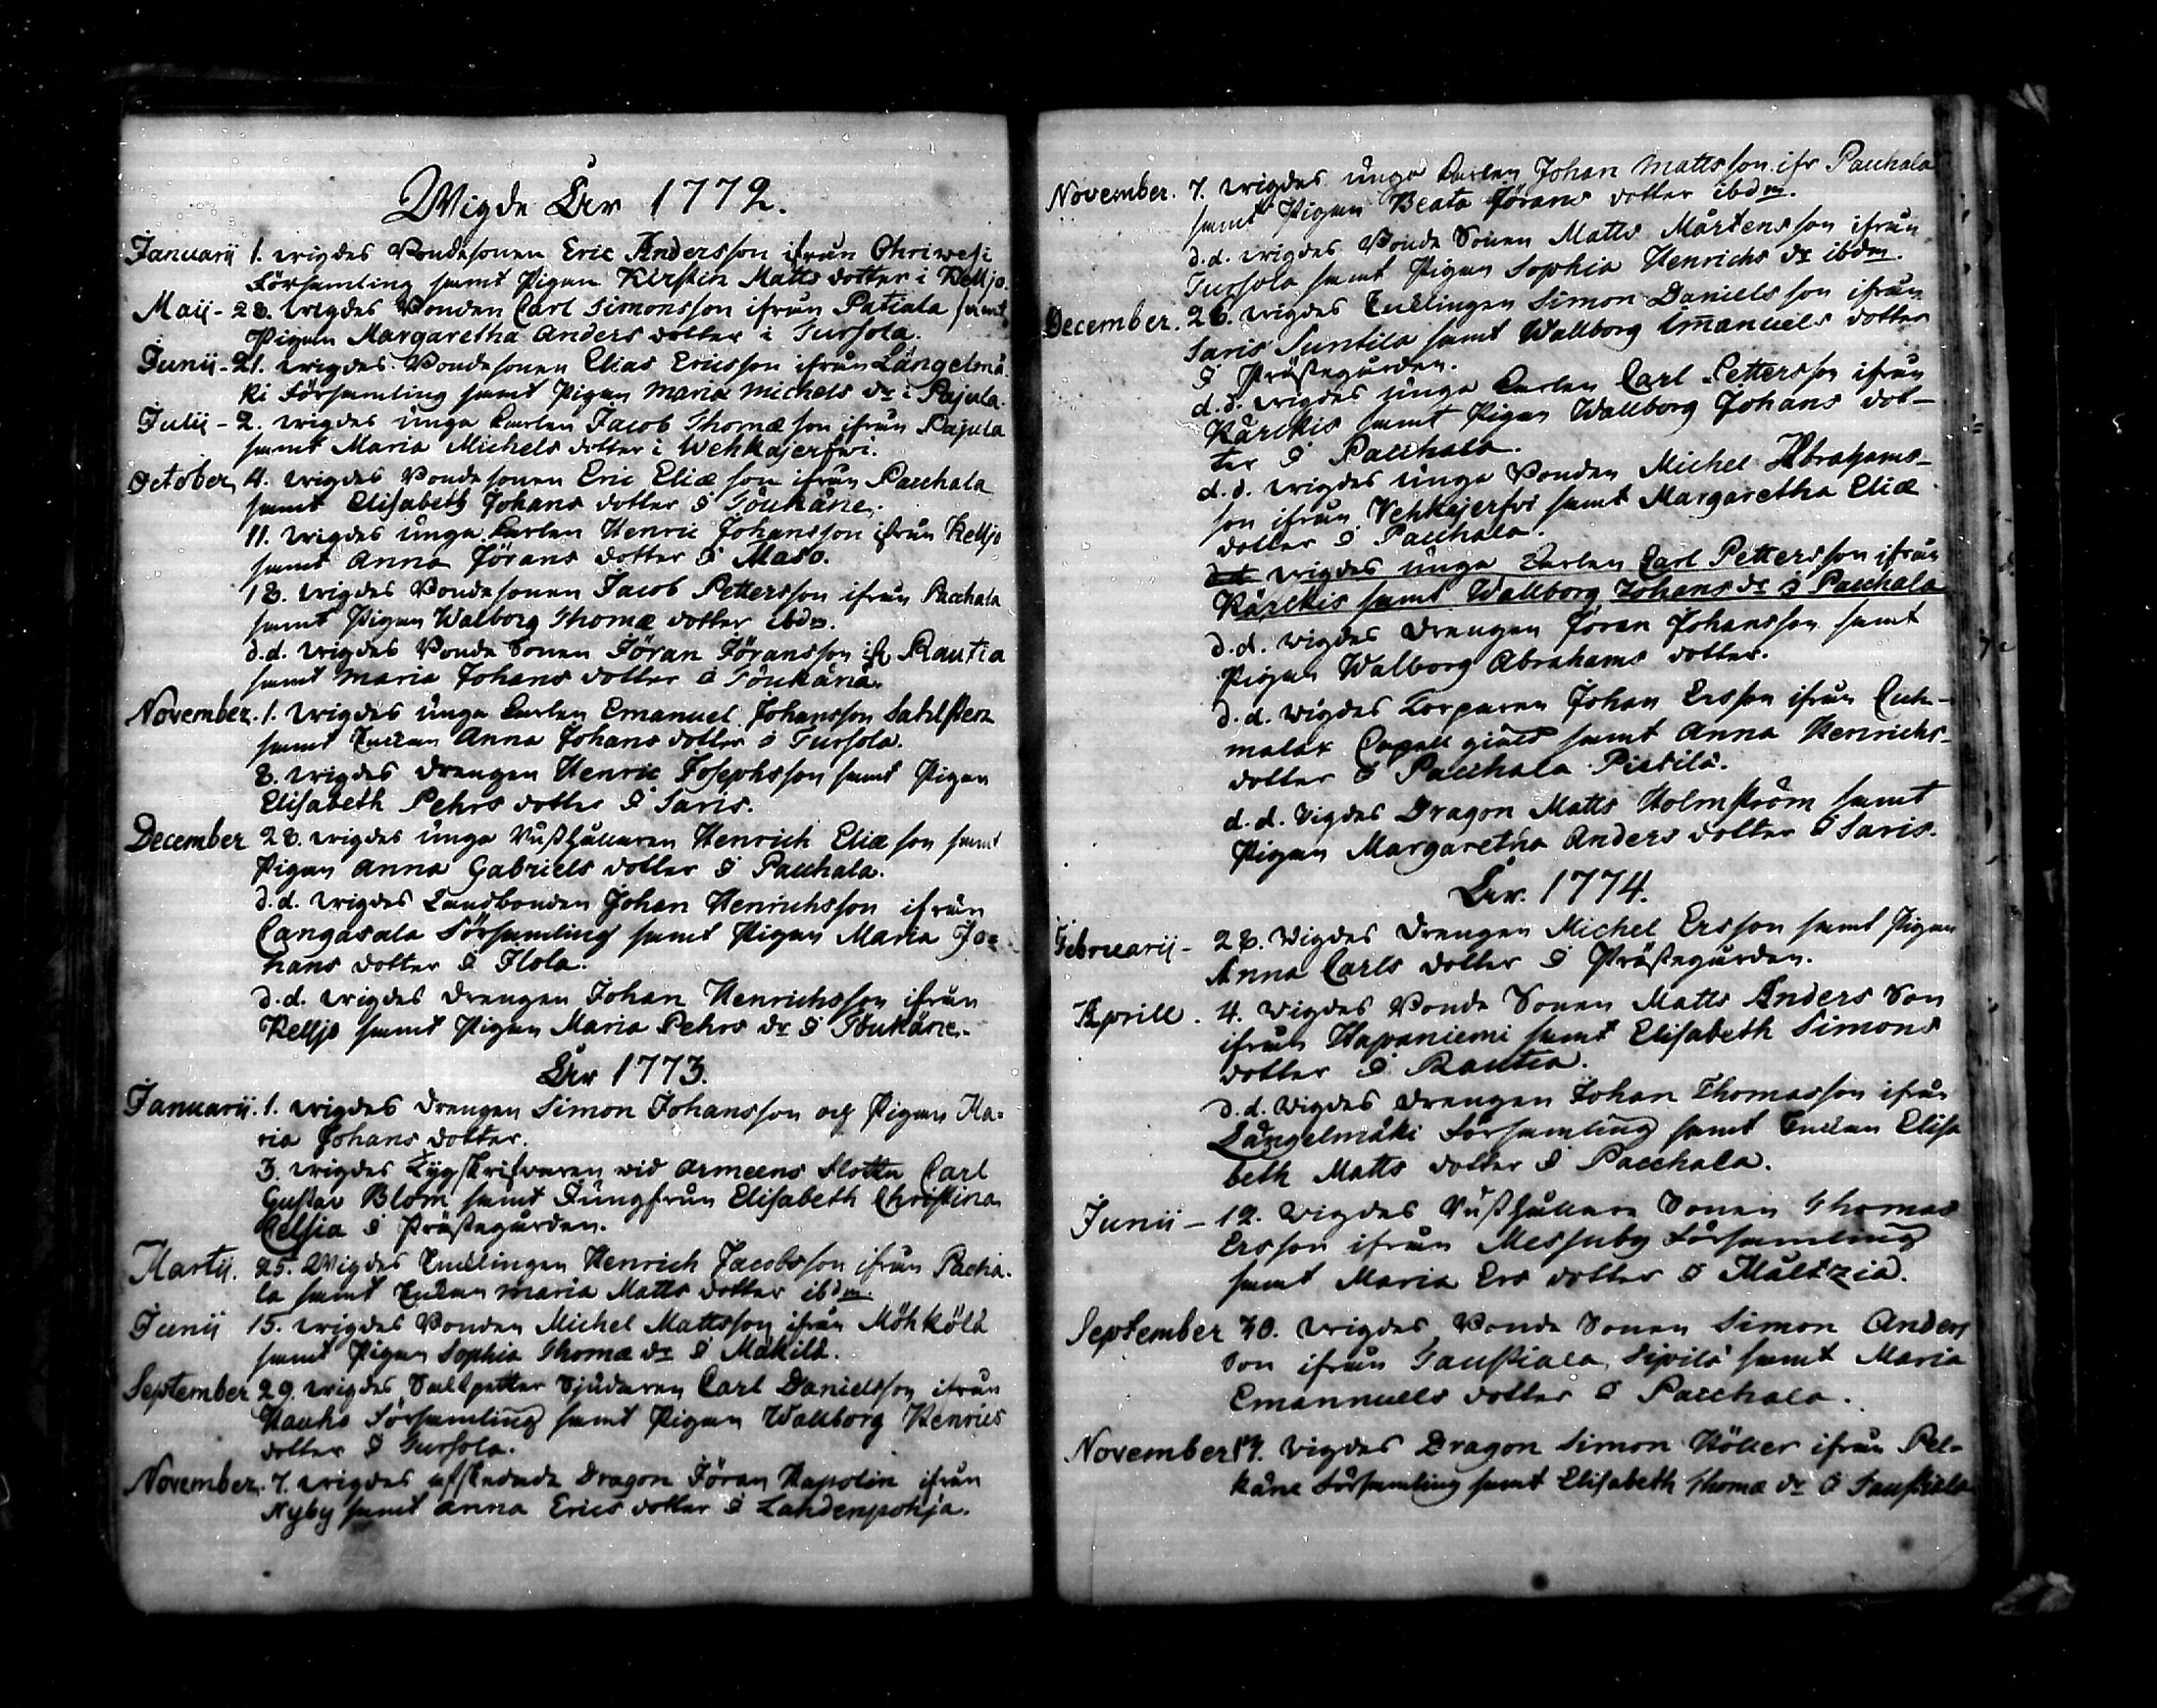 Wigde Åhr 1772.
Januarii 1. wigdes Bondesonen Eric Andersson ifrån Ohriwesi
Församling samt Pigan Kirstin Matts dotter i Kelljo.
Maij - 28. wigdes Bonden Carl Simonsson ifrån Patiala samt
Pigan Margaretha Anders dotter i Tursola.
Junii - 21. wigdes Bondesonen Elias Ericsson ifrån Längelmä
ki Församling samt Pigan Maria Michels dr i Pajula.
Julii - 2. wigdes unga Carlen Jacob Thomæ son ifrån Pajula
samt Maria Michels dotter i Wehkajerfwi.
October 4. wigdes Bondesonen Eric Eliæ son ifrån Pacchala
samt Elisabeth Johans dotter i Tönkäne.
11. wigdes unga Carlen Henric Johansson ifrån Kelljo
samt Anna Jörans dotter i Maso.
18. wigdes Bondesonen Jacob Pettersson ifrån Pacchala
samt Pigan Walborg Thomæ dotter ibdm.
d.d. wigdes Bonde Sonen Jöran Jöransson ifr Rautia
samt Maria Johans dotter i Tönkäne.
November. 1. wigdes unga Carlen Emanuel Johansson Sahlsten
samt Enkan Anna Johans dotter i Tursola.
8. wigdes Drengen Henric Josephsson samt Pigan
Elisabeth Pehrs dotter i Saris.
December 28. wigdes unga Rusthållaren Henrich Eliæ son samt
Pigan Anna Gabriels dotter i Pacchala.
d.d. wigdes Landbonden Johan Henrichsson ifrån
Cangasala Församling samt Pigan Maria Jo=
hans dotter i Ilola.
d.d. wigdes Drengen Johan Henrichsson ifrån
Kelljo samt Pigan Maria Pehrs dr i Tönkäne.
Åhr 1773.
Januarii. 1. wigdes Drengen Simon Johansson och Pigan Ma=
ria Johans dotter.
3. wigdes Tygskrifwaren wid Armeens Flotta Carl
Gustav Blom samt Jungfrun Elisabeth Christina
Celsia i Prästegården.
Martii. 25. Wigdes Enklingen Henrich Jacobsson ifrån Pacha-
la samt Enkan Maria Matts dotter ibdm.
Junii 15. wigdes Bonden Michel Mattsson ifrån Möhkölä
samt Pigan Sophia Thomæ dr i Mäkilä.
September 29. wigdes Saltpetter Sjudaren Carl Danielsson ifrån
Hauho Församling samt Pigan Wallborg Henrics
dotter i Tursola.
November. 7. wigdes afskedade Dragon Jöran Hapolin ifrån
Nyby samt Anna Erics dotter i Lahdenpohja.
November. 7. wigdes unga Carlen Johan Mattsson ifr Pacchala
samt Pigan Beata Jörans dotter ibdm.
d.d. wigdes Bonde Sonen Matts Mårtensson ifrån
Tursola samt Pigan Sophia Henrichs dr ibdm.
December. 26. wigdes Enklingen Simon Danielsson ifrån
Saris Suntila samt Wallborg Emanuels dotter
i Prästegården.
d.d. wigdes unga Carlen Carl Pettersson ifrån
Kärckis samt Pigan Wallborg Johans dot-
ter i Pacchala.
d.d. wigdes unga Bonden Michel Abrahams-
son ifrån Vehkajerfvi samt Margaretha Eliæ
dotter i Pacchala.
d.d. wigdes unga Carlen Carl Pettersson ifrån
Kärckis samt Wallborg Johans dr i Pacchala
d.d. wigdes Drengen Jöran Johansson samt
Pigan Walborg Abrahams dotter.
d.d. wigdes Torparen Johan Ersson ifrån Cuh-
malax Capell giäld samt Anna Henrichs-
dotter i Pacchala Pirtilä.
d.d. Vigdes Dragon Matts Holmström samt
Pigan Margaretha Anders dotter i Saris.
Åhr. 1774.
Februarii - 28. Wigdes Drengen Michel Ersson samt Pigan
Anna Carls dotter i Prästegården.
Aprill. 4. wigdes Bonde Sonen Matts Anders Son
ifrån Hapaniemi samt Elisabeth Simons
dotter i Rautia.
d.d. wigdes Drengen Johan Thomasson ifrån
Längelmäki Församling samt Enkan Elisa
beth Matts dotter i Pacchala.
Junii - 12. wigdes Rusthållare Sonen Thomas
Ersson ifrån Messuby Församling
samt Maria Ers dotter i Mältziä.
September 30. wigdes Bonde Sonen Simon Anders
Son ifrån Taustiala Sipilä samt Maria
Emannuels dotter i Pacchala.
November 17. Vigdes Dragon Simon Höker ifrån Pel-
käne Församling samt Elisabeth Thomæ dr i Taustiala